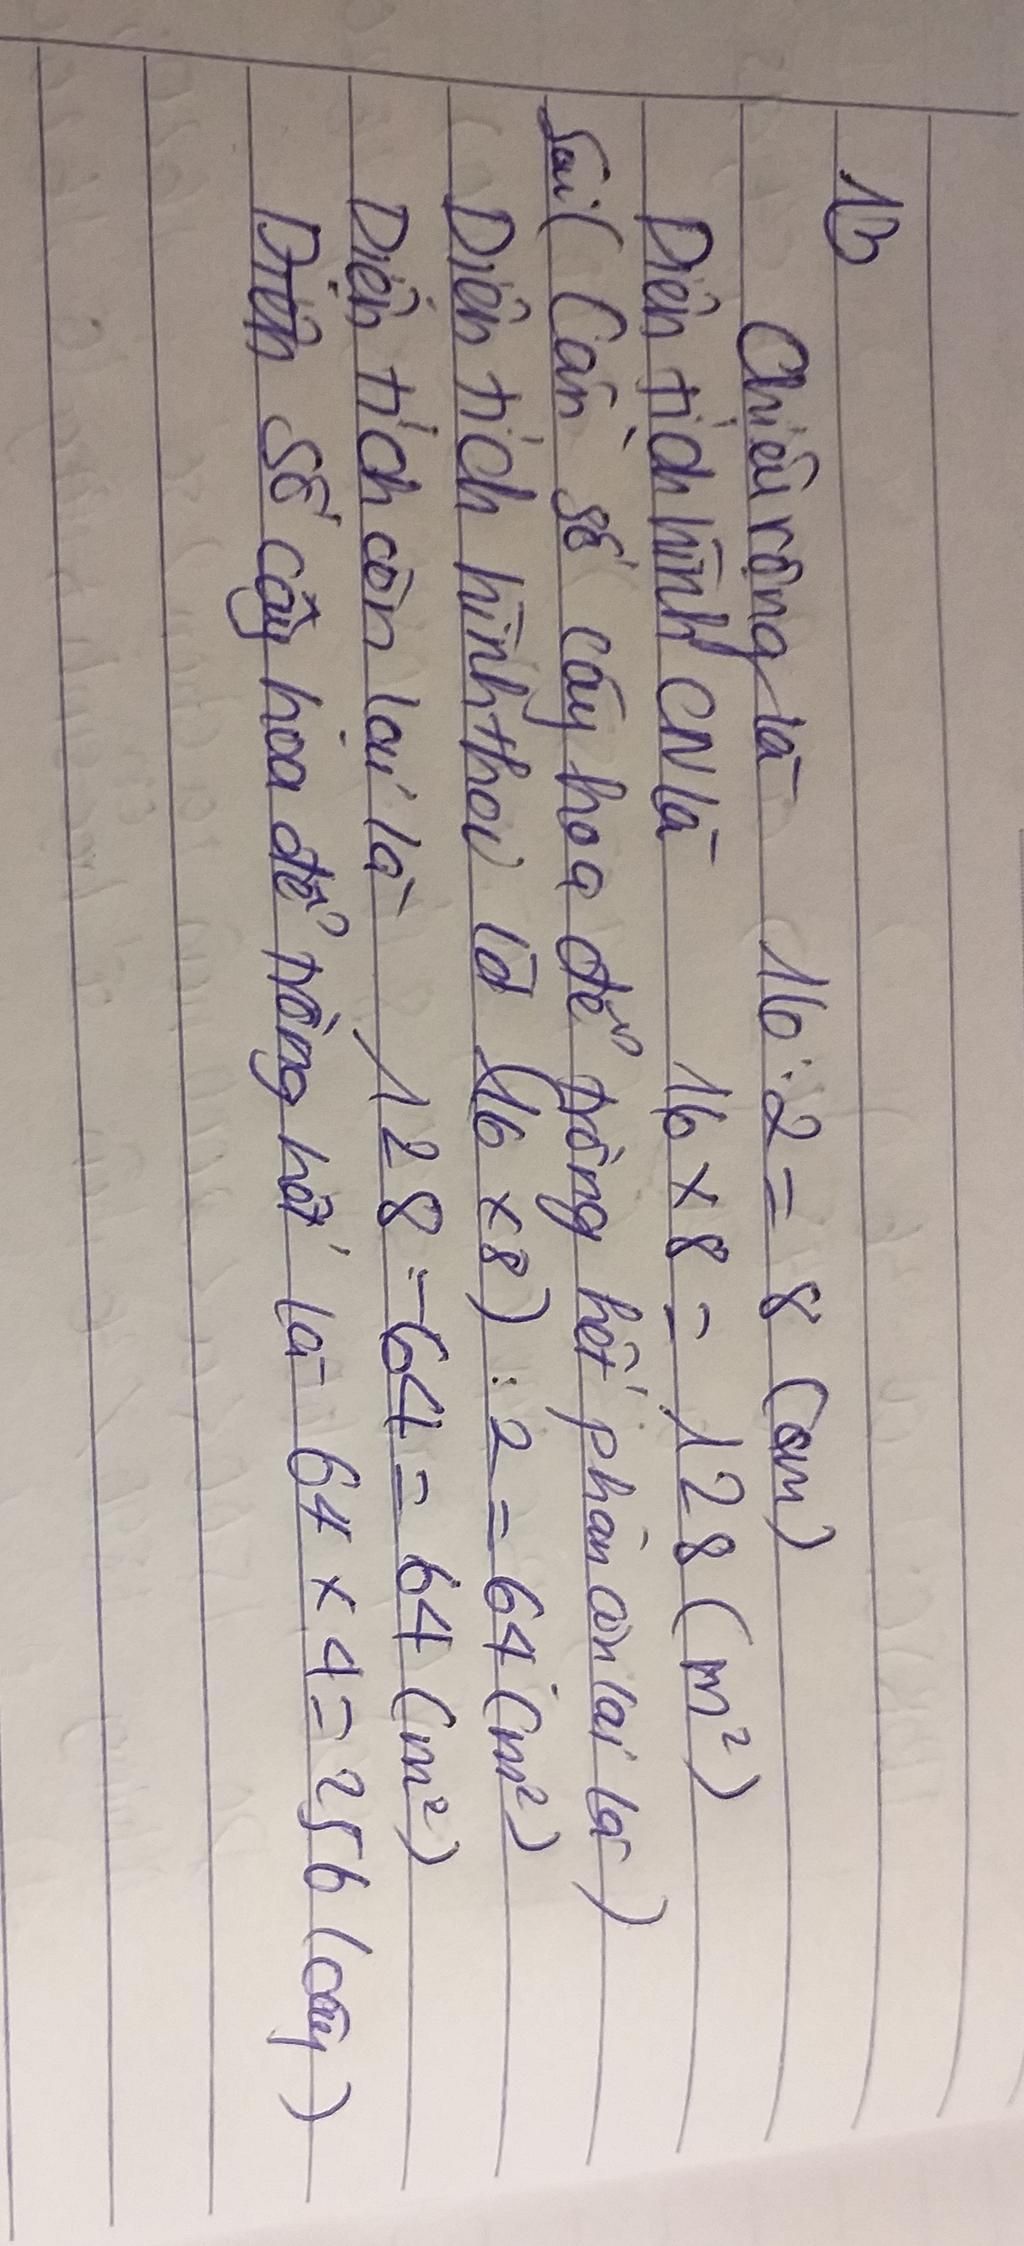 1b
Chiều rộng là 16 : 2 = 8 (cm)
Diện tích hình CN là 16 x 8 = 128 (m²)
Sai (Cần số cây hoa để trồng hết phần còn lại là)
Diện tích hình thoi là (16 x 8) : 2 = 64 (m²)
Diện tích còn lại là 128 - 64 = 64 (m²)
số cây hoa để trồng hết là 64 x 4 = 256 (cây)